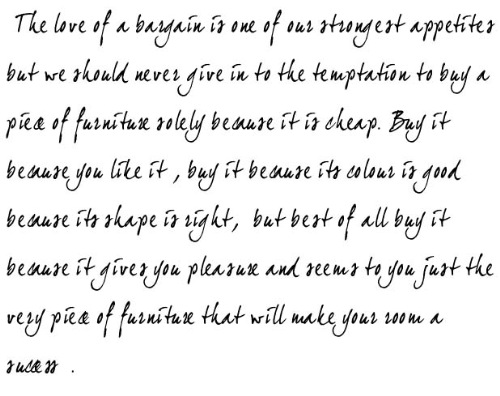 The love of a bargain is one of our strongest appetites
but we should never give in to the temptation to buy a
piece of furniture solely because it is cheap. Buy it
because you like it , buy it because its colour is good
because its shape is right, but best of all buy it
because it gives you pleasure and seems to you just the
very piece of furniture that will make your room a
success .